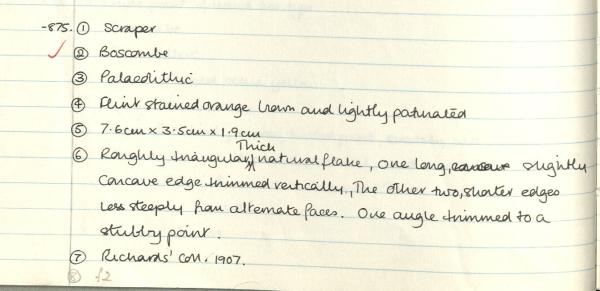 -875. ① Scraper
② Boscombe
③ Palaeolithic
④ Flint stained orange brown and lightly patinated
⑤ 7.6cm x 3.5cm x 1.9cm
Thick
⑥ Roughly triangular, natural flake, one long, slightly
concave edge trimmed vertically, The other two, shorter edges
less steeply from alternate faces. One angle trimmed to a
stubby point.
⑦ Richards' coll. 1907.
⑧ f2